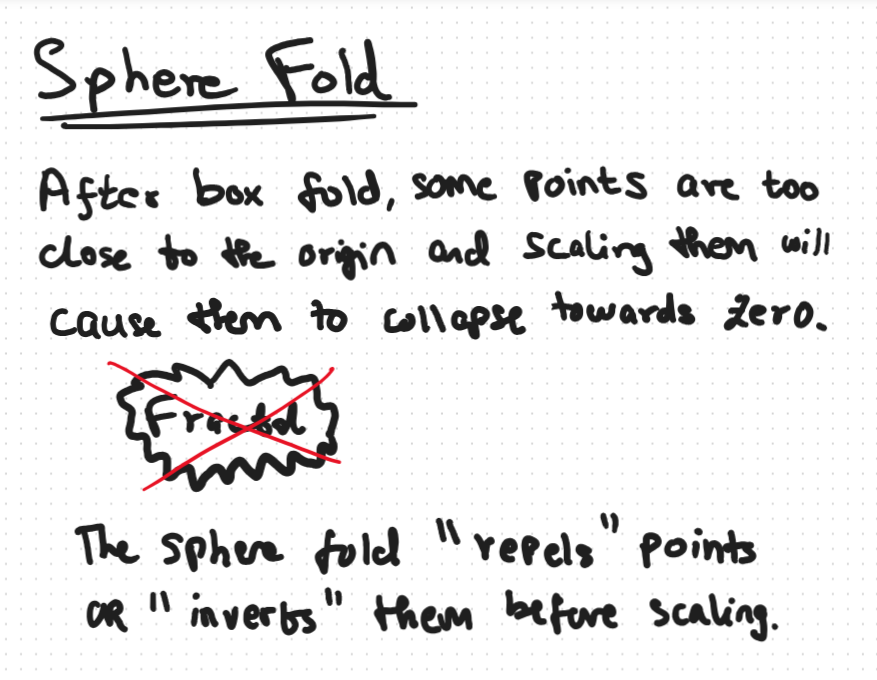 Sphere Fold
After box fold, some points are too
close to the origin and scaling them will
cause them to collapse towards zero.
Fractal
The sphere fold "repels" points
OR "inverts" them before scaling.